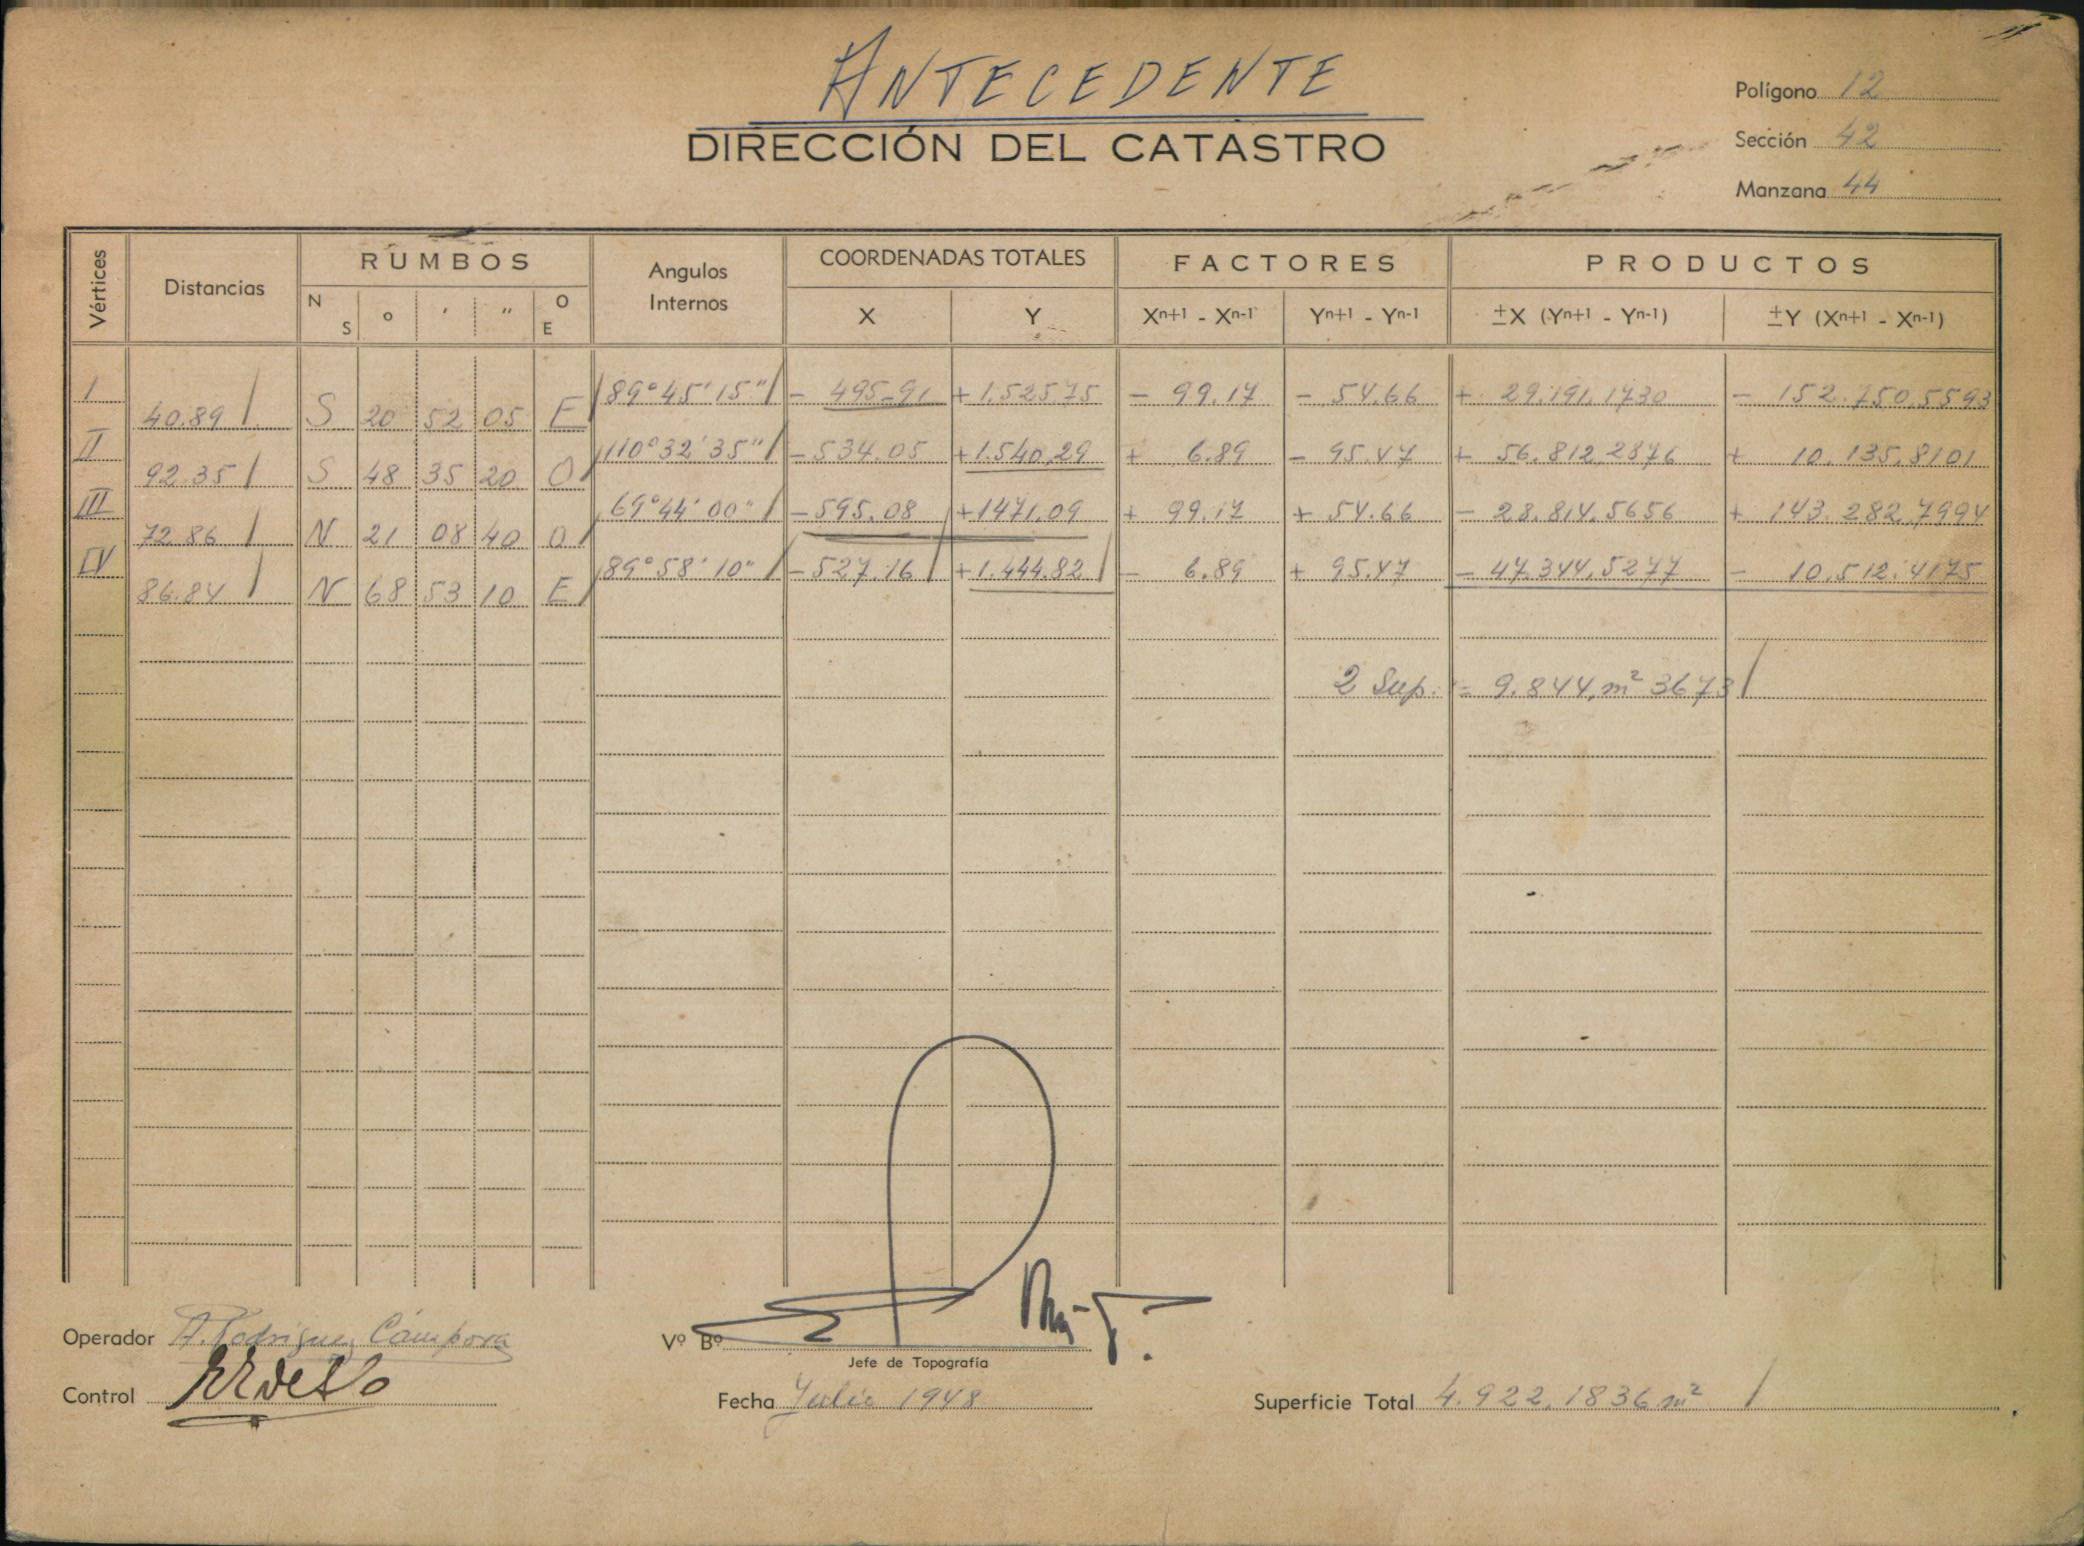 ANTECEDENTE
DIRECCIÓN DEL CATASTRO
Polígono 12
Sección 42
Manzana 44
Vértices Distancias RUMBOS Angulos Internos COORDENADAS TOTALES FACTORES PRODUCTOS
N S o ' " O E X Y Xn+1 - Xn-1 Yn+1 - Yn-1 ±X (Yn+1 - Yn-1) ±Y (Xn+1 - Xn-1)
I 89°45'15" - 495.91 +1.525.75 - 99.17 - 54.66 + 29.191.1730 - 152.750.5593
40.89 S 20 52 05 E
II 110°32'35" - 534.05 +1.540.29 + 6.89 - 95.47 + 56.812.2876 + 10.135.8101
92.35 S 48 35 20 O
III 69°44'00" - 595.08 +1471.09 + 99.17 + 54.66 - 28.814.5656 + 143.282.7994
72.86 N 21 08 40 O
IV 89°58'10" - 527.16 +1.444.82 - 6.89 + 95.47 - 47.344.5277 - 10.512.4175
86.84 N 68 53 10 E
2 Sup. = 9.844,m² 3673
Operador A. Rodriguez Campora
Vº Bº
Jefe de Topografía
Control
Fecha Julio 1948
Superficie Total 4.922.1836 m²